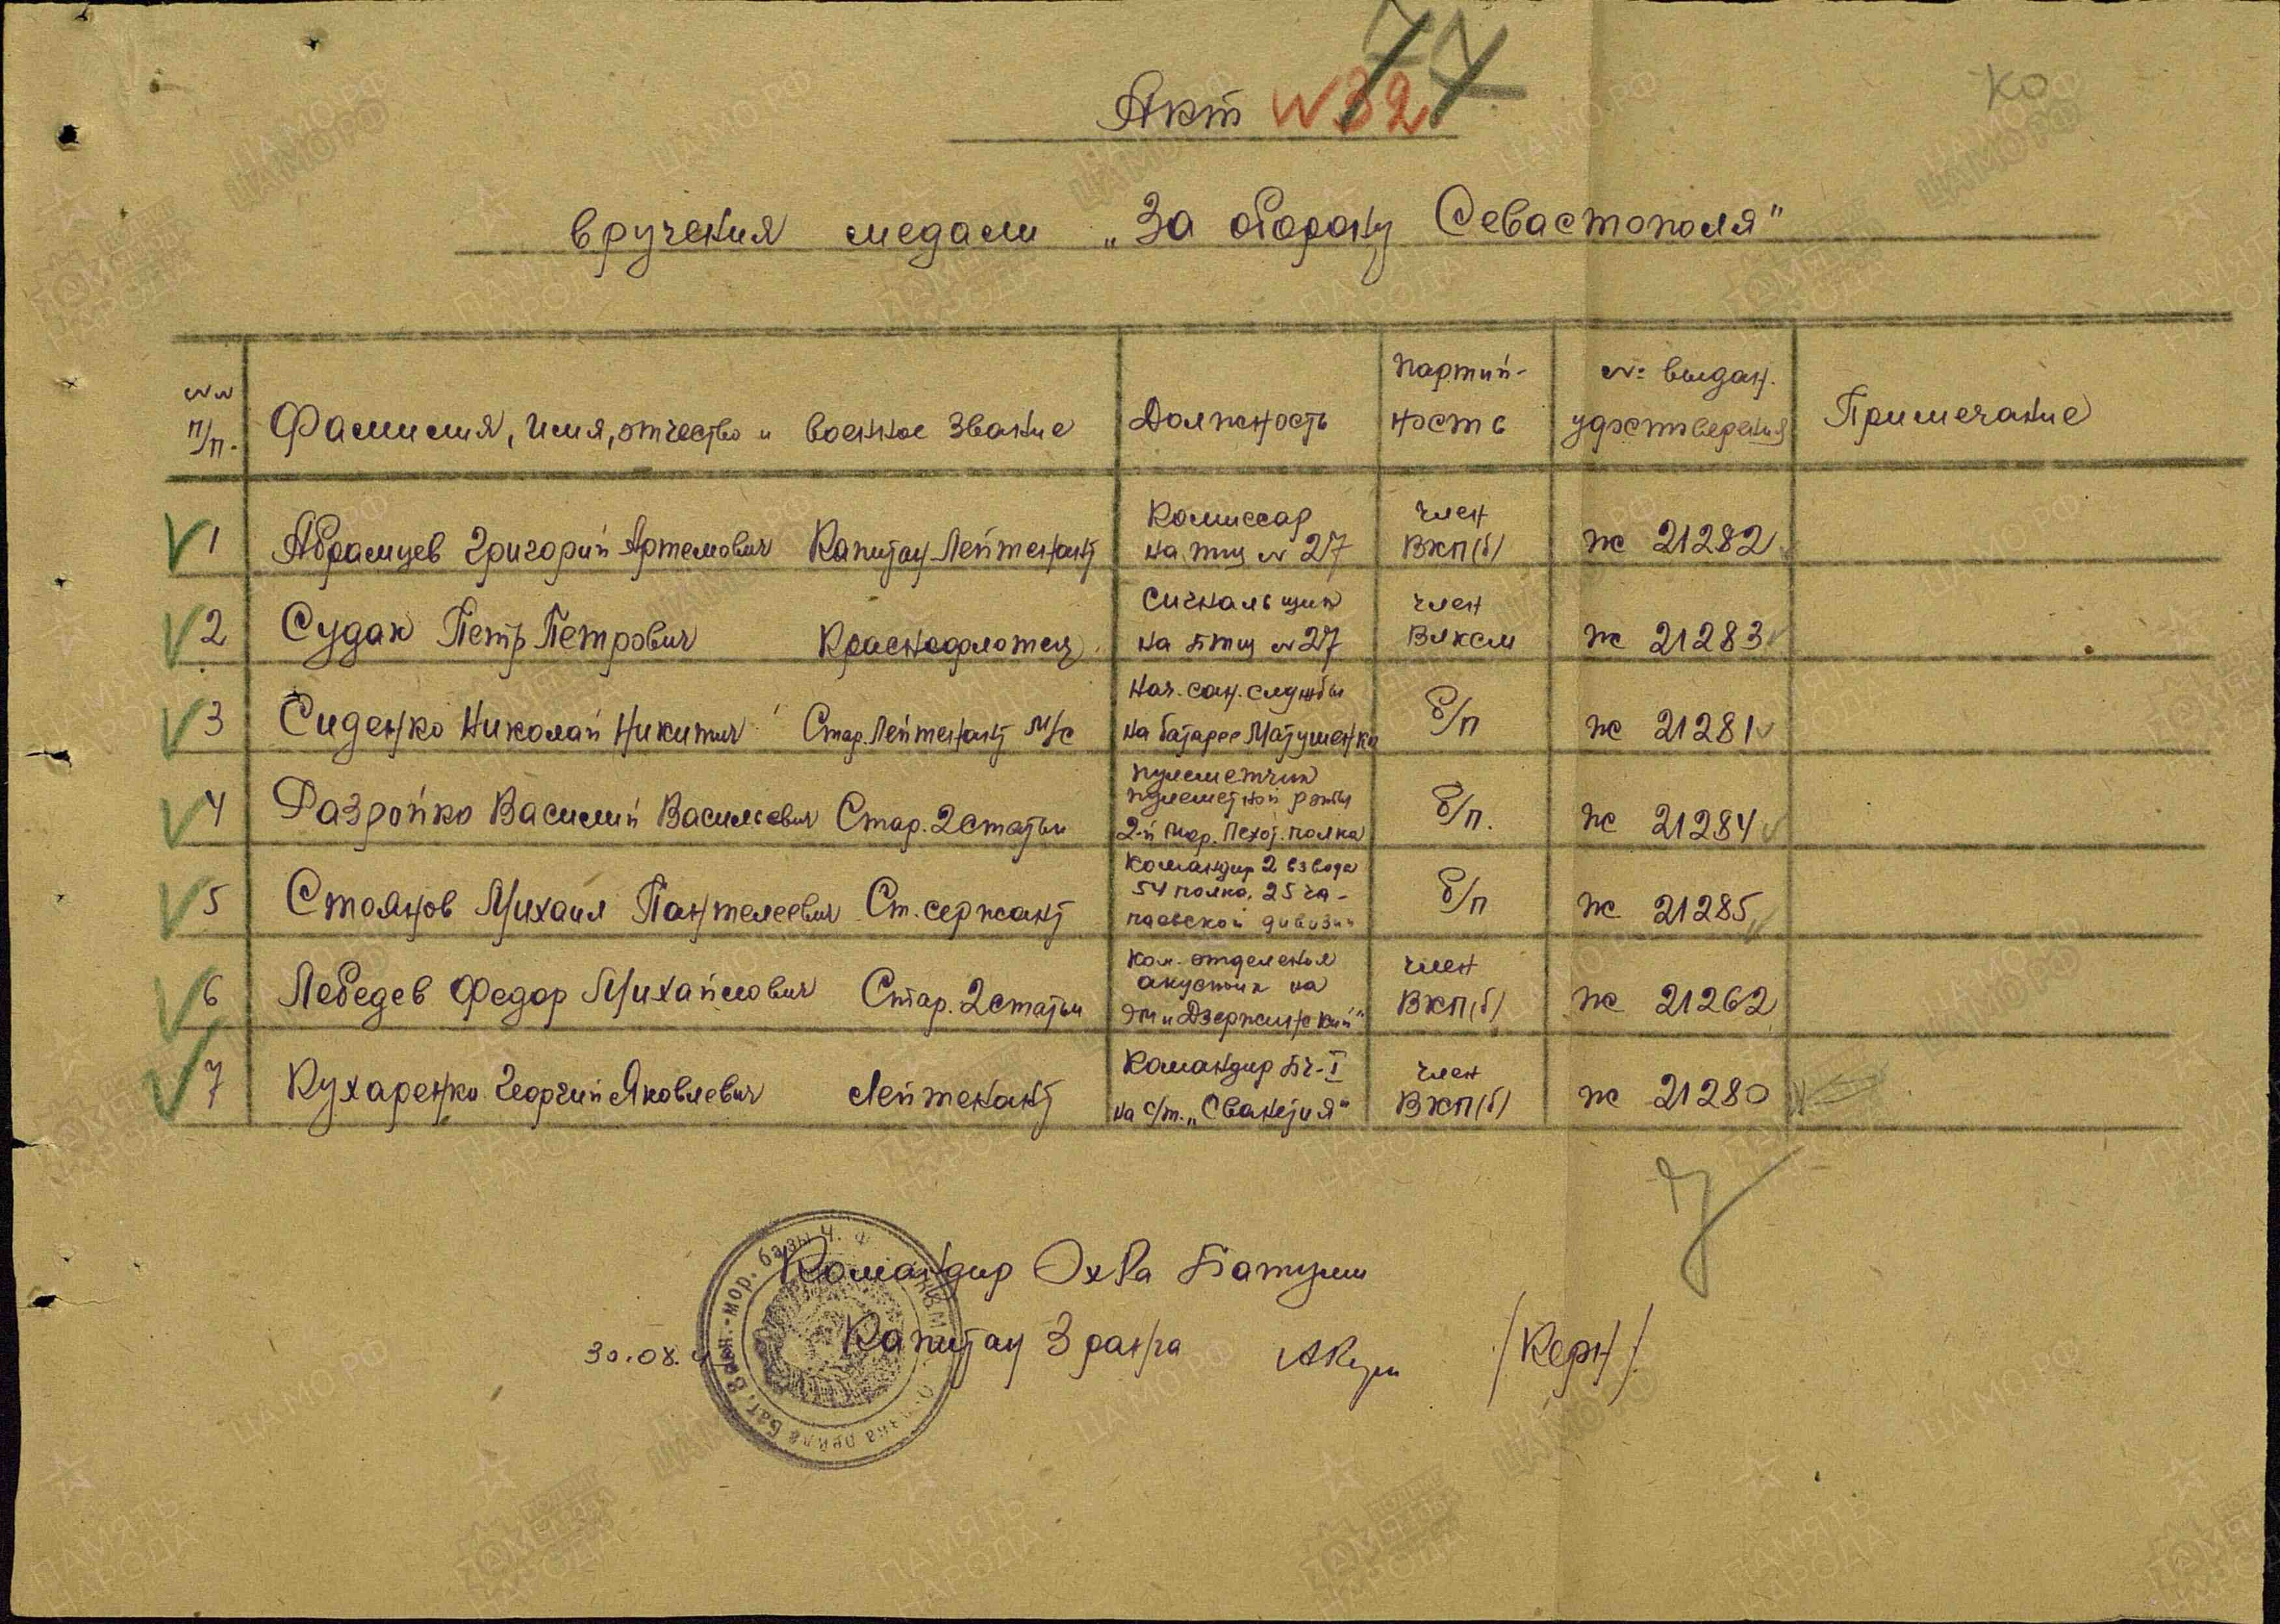 77
Ко
Акт № 32
вручения медали „За оборону Севастополя"
№№ п/п. Фамилия, имя, отчество и военное звание Должность Партий- ность №: выдан. удостверения Примечание
1 Абрамцев Григорий Артемович Капитан-Лейтенант Комиссар на тщ № 27 член ВКП(б) Ж 21282
2 Судак Петр Петрович Краснофлотец Сигнальщик на бтщ № 27 член ВЛКСМ Ж 21283
3 Сиденко Николай Никитич Стар. Лейтенант М/с Нач. сан. службы на батарее Матушенко б/п Ж 21281
4 Разройко Василий Васильевич Стар. 2 статьи пулеметчик пулеметной роты 2-й Мор. Пехот. полка б/п. Ж 21284
5 Стоянов Михаил Пантелеевич Ст. сержант Командир 2 взвода 54 полка, 25 ча- паевской дивизии б/п Ж 21285
6 Лебедев Федор Михайлович Стар. 2 статьи Ком. отделения акустик на эм „Дзержинский" член ВКП(б) Ж 21262
7 Кухаренко Георгий Яковлевич Лейтенант Командир БЧ-I на с/т. „Сванетия" член ВКП(б) Ж 21280
7
Командир ОхРа Батуми
30.08. Капитан 3 ранга /Керн/
Бат. Воен.-мор. базы Ч. Ф
ЦАМО.РФ
ПАМЯТЬ НАРОДА